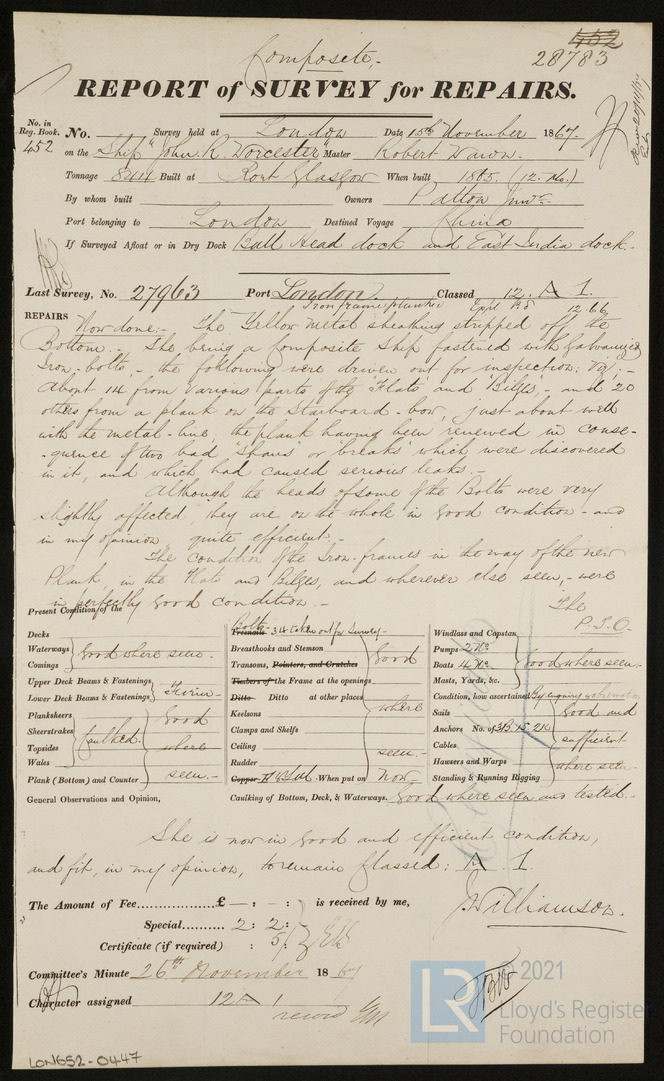 Composite.-
452
28783
REPORT of SURVEY for REPAIRS.
No. in
Reg. Book.
452
No. Survey held at London Date 15th November 1867.
on the Ship "John R. Worcester" Master Robert
Tonnage 844 Built at Port Glasgow When built 1865 (12. Mo.)
By whom built Owners Patton Junr.
Port belonging to London Destined Voyage China
If Surveyed Afloat or in Dry Dock Bull Head dock and East India dock.-
Last Survey, No. 27963 Port London. Classed 12. A 1.
Iron frame planked 12.66
REPAIRS
Now done:- The Yellow Metal sheathing stripped off the
Bottom.- She being a Composite Ship fastened with Galvanized
Iron-bolts,- the following were driven out for inspection: viz:-
About 14 from various parts of the Flats and Bilges,- and 20
others from a plank on the Starboard-bow, just about well
with the metal-line; the plank having been renewed in conse-
-quence of two bad 'Shaws' or 'breaks' which were discovered
in it, and which had caused serious leaks.-
Although the heads of some of the Bolts were very
slightly affected, they are on the whole in good condition - and
in my opinion quite efficient.-
The condition of the Iron-frames in the way of the new
Plank, in the Flats and Bilges, and wherever else seen,- were
in perfectly good condition.-
The
P.T.O.
Present Condition of the
Decks
Waterways
Comings
Good where seen.-
Upper Deck Beams & Fastenings
Lower Deck Beams & Fastenings
Planksheers
Sheerstrakes
Topsides
Wales
Plank (Bottom) and Counter
Caulked
Good
where
seen.-
Bolts-
Treenails 34 taken out for Survey-
Breasthooks and Stemson
Transons, Pointers, and Crutches
Timbers of the Frame at the openings
Ditto Ditto at other places
Keelsons
Clamps and Shelfs
Ceiling
Rudder
Good
where
seen.-
Copper When put on now-
Windlass and Capstan
Pumps 2 No.
Boats 4 No.
Masts, Yards, &c.
Good where seen-
Condition, how ascertained By enquiry & observation
Sails
Anchors No. of 3B. 1S. 2K.
Cables
Hawsers and Warps
Standing & Running Rigging
Good and
sufficient
where seen-
General Observations and Opinion,
Caulking of Bottom, Deck, & Waterways. Good where seen and tested.-
She is now in good and efficient condition,
and fit, in my opinion, to remain Classed: A 1.
The Amount of Fee............... £ — : - : is received by me,
Special.......... 2 : 2 :
Certificate (if required) : 5/
JWilliamson.
Committee's Minute 26th November 1867
Character assigned 12 A 1
LON652-0447
© 2021
LR
Lloyd's Register
Foundation